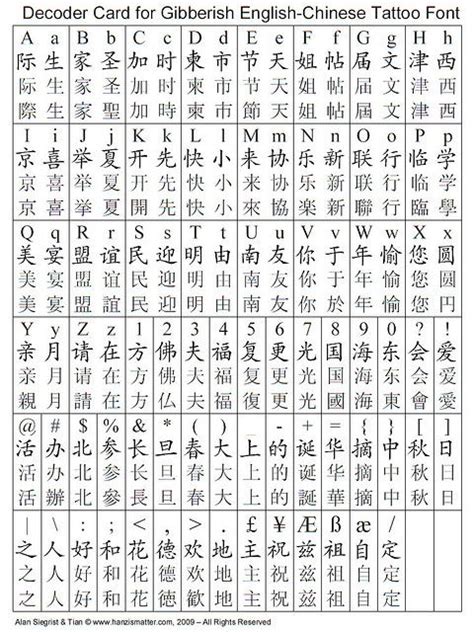 Decoder Card for Gibberish English-Chinese Tattoo Font
A a B b C c D d E e F f G g H h
际 生 家 圣 加 时 柬 市 节 天 姐 帖 届 文 津 西
际 生 家 圣 加 时 柬 市 节 天 姐 帖 届 文 津 西
際 生 家 聖 加 時 柬 市 節 天 姐 帖 屆 文 津 西
I i J j K k L l M m N n O o P p
京 喜 举 夏 开 先 快 小 来 协 乐 新 联 行 临 学
京 喜 举 夏 开 先 快 小 来 协 乐 新 联 行 临 学
京 喜 舉 夏 開 先 快 小 來 協 樂 新 聯 行 臨 學
Q q R r S s T t U u V v W w X x
美 宴 盟 谊 民 迎 明 由 南 友 你 于 年 愉 您 圆
美 宴 盟 谊 民 迎 明 由 南 友 你 于 年 愉 您 圆
美 宴 盟 誼 民 迎 明 由 南 友 你 於 年 愉 您 円
Y y Z z 1 2 3 4 5 6 7 8 9 0 ? !
亲 月 请 在 方 佛 夫 福 复 更 光 国 海 东 会 爱
亲 月 请 在 方 佛 夫 福 复 更 光 国 海 东 会 爱
親 月 請 在 方 仏 夫 福 復 更 光 國 海 東 會 愛
@ # $ % & * ( ) _ - + = { } [ ]
活 办 北 参 长 旦 春 大 上 的 诞 华 摘 中 秋 日
活 办 北 参 长 旦 春 大 上 的 诞 华 摘 中 秋 日
活 辦 北 參 長 旦 春 大 上 的 誕 華 摘 中 秋 日
| \ : ; < , > . £ ¥ Æ ß æ /
之 人 好 和 花 德 欢 地 主 祝 兹 祖 自 定
之 人 好 和 花 德 欢 地 主 祝 兹 祖 自 定
之 人 好 和 花 徳 歓 地 主 祝 茲 祖 自 定
Alan Siegrist & Tian © www.hanzismatter.com, 2009 – All Rights Reserved